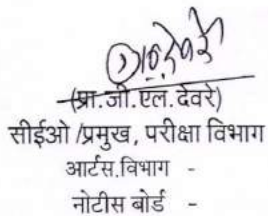 (प्रा.जी.एल.देवरे)
सीईओ /प्रमुख, परीक्षा विभाग
आर्टस.विभाग -
नोटीस बोर्ड -